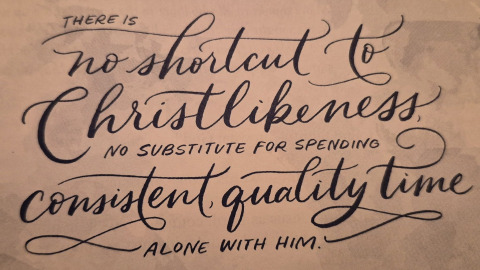 THERE IS
no shortcut to
Christlikeness,
NO SUBSTITUTE FOR SPENDING
consistent, quality time
ALONE WITH HIM.